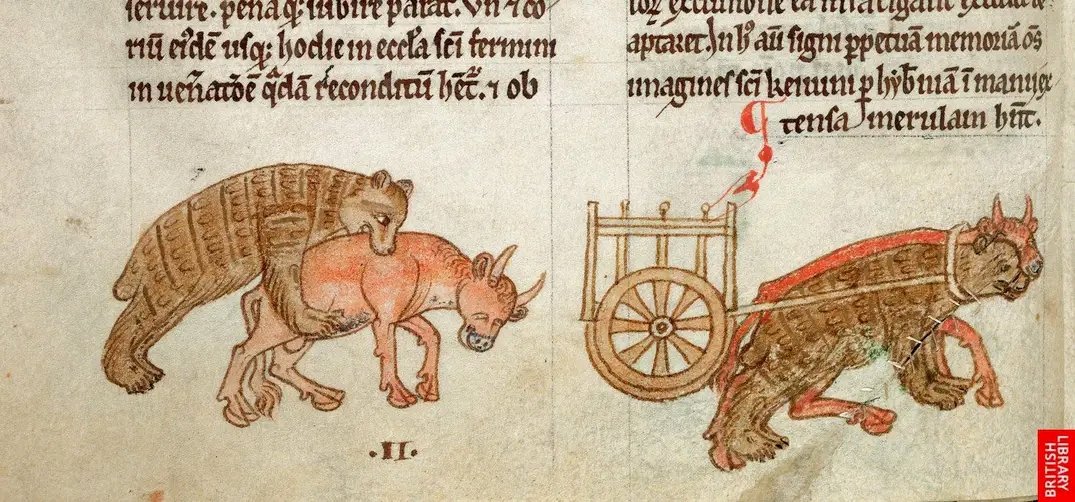 seruire. penaq; subire parat. Vn ⁊ co
riū eiꝰdē usq; hodie in eccl̄a sc̄i fermini
in uen̄atōe q̄dā reconditū het̄. ⁊ ob
aptaret. In hꝰ aū signi ppetuā memoriā oēs
imagines sc̄i keiuini p hyƀniā ī manu ex
tensa merulam hn̄t.
.II.
BRITISH
LIBRARY